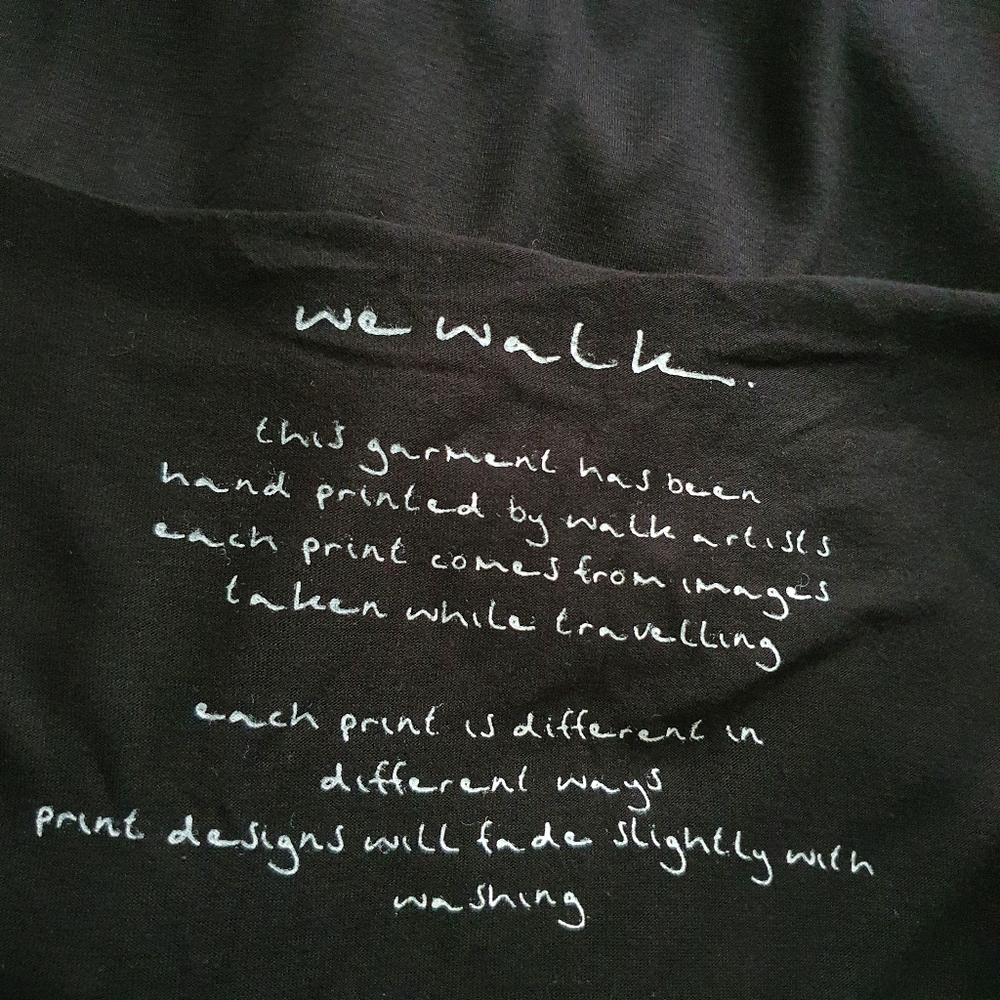 we walk.
this garment has been
hand printed by walk artists
each print comes from images
taken while travelling
each print is different in
different ways
print designs will fade slightly with
washing